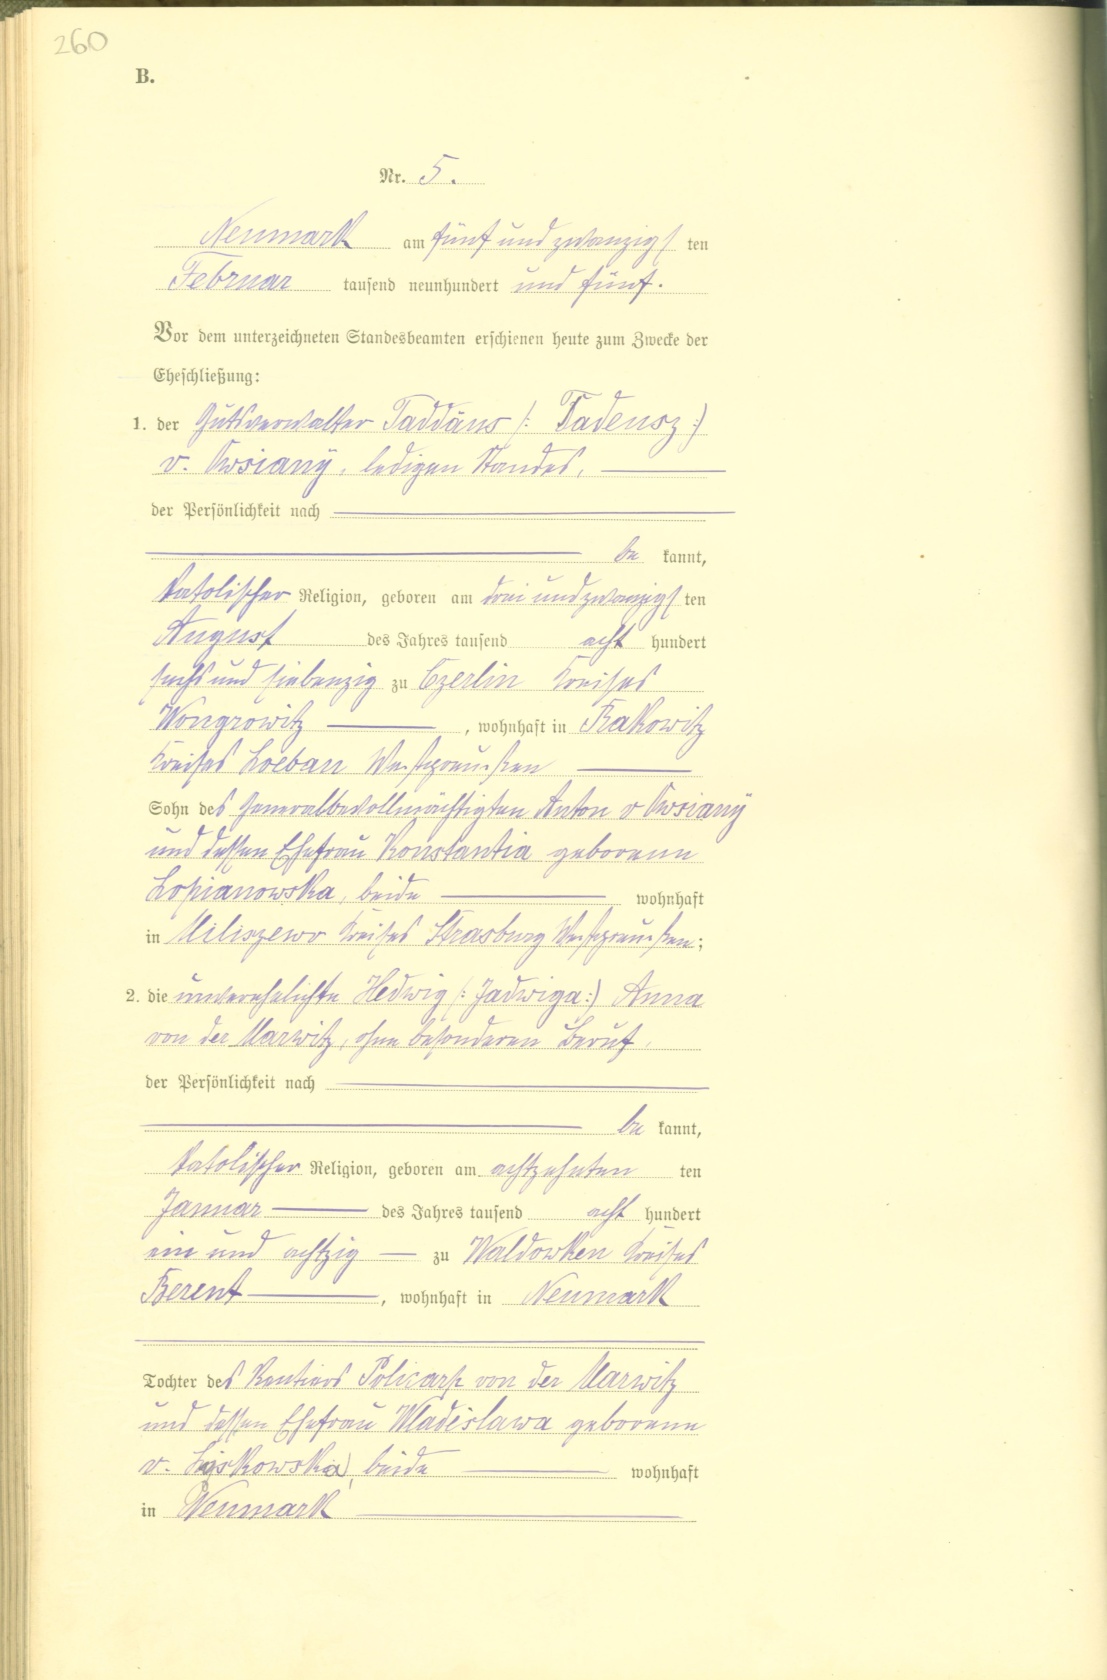 260
B.
Nr. 5.
Neumark am fünf und zwanzigs ten
Februar tausend neunhundert und fünf.
Vor dem unterzeichneten Standesbeamten erschienen heute zum Zwecke der
Eheschließung:
1. der Gutsverwalter Taddäus /: Tadeusz :/
v. Owsianÿ, ledigen Standes,
der Persönlichkeit nach
be kannt,
katolischer Religion, geboren am drei und zwanzigs ten
August des Jahres tausend acht hundert
sechs und siebenzig zu Czerlin Kreises
Wongrowitz, wohnhaft in Rakowitz
Kreises Loebau Westpreußen
Sohn des Generalbevollmächtigten Anton v Owsianÿ
und dessen Ehefrau Konstantia geborenen
beide wohnhaft
in Miliszewo Kreises Strasburg Westpreußen;
2. die unverehelichte Hedwig /: Jadwiga :/ Anna
von der Marwitz, ohne besonderen Beruf,
der Persönlichkeit nach
be kannt,
katolischer Religion, geboren am achtzehnten ten
Januar des Jahres tausend acht hundert
ein und achtzig zu Waldowken Kreises
Berent, wohnhaft in Neumark
Tochter des Rentiers Policarp von der Marwitz
und dessen Ehefrau Wladislawa geborenen
v. beide wohnhaft
in Neumark